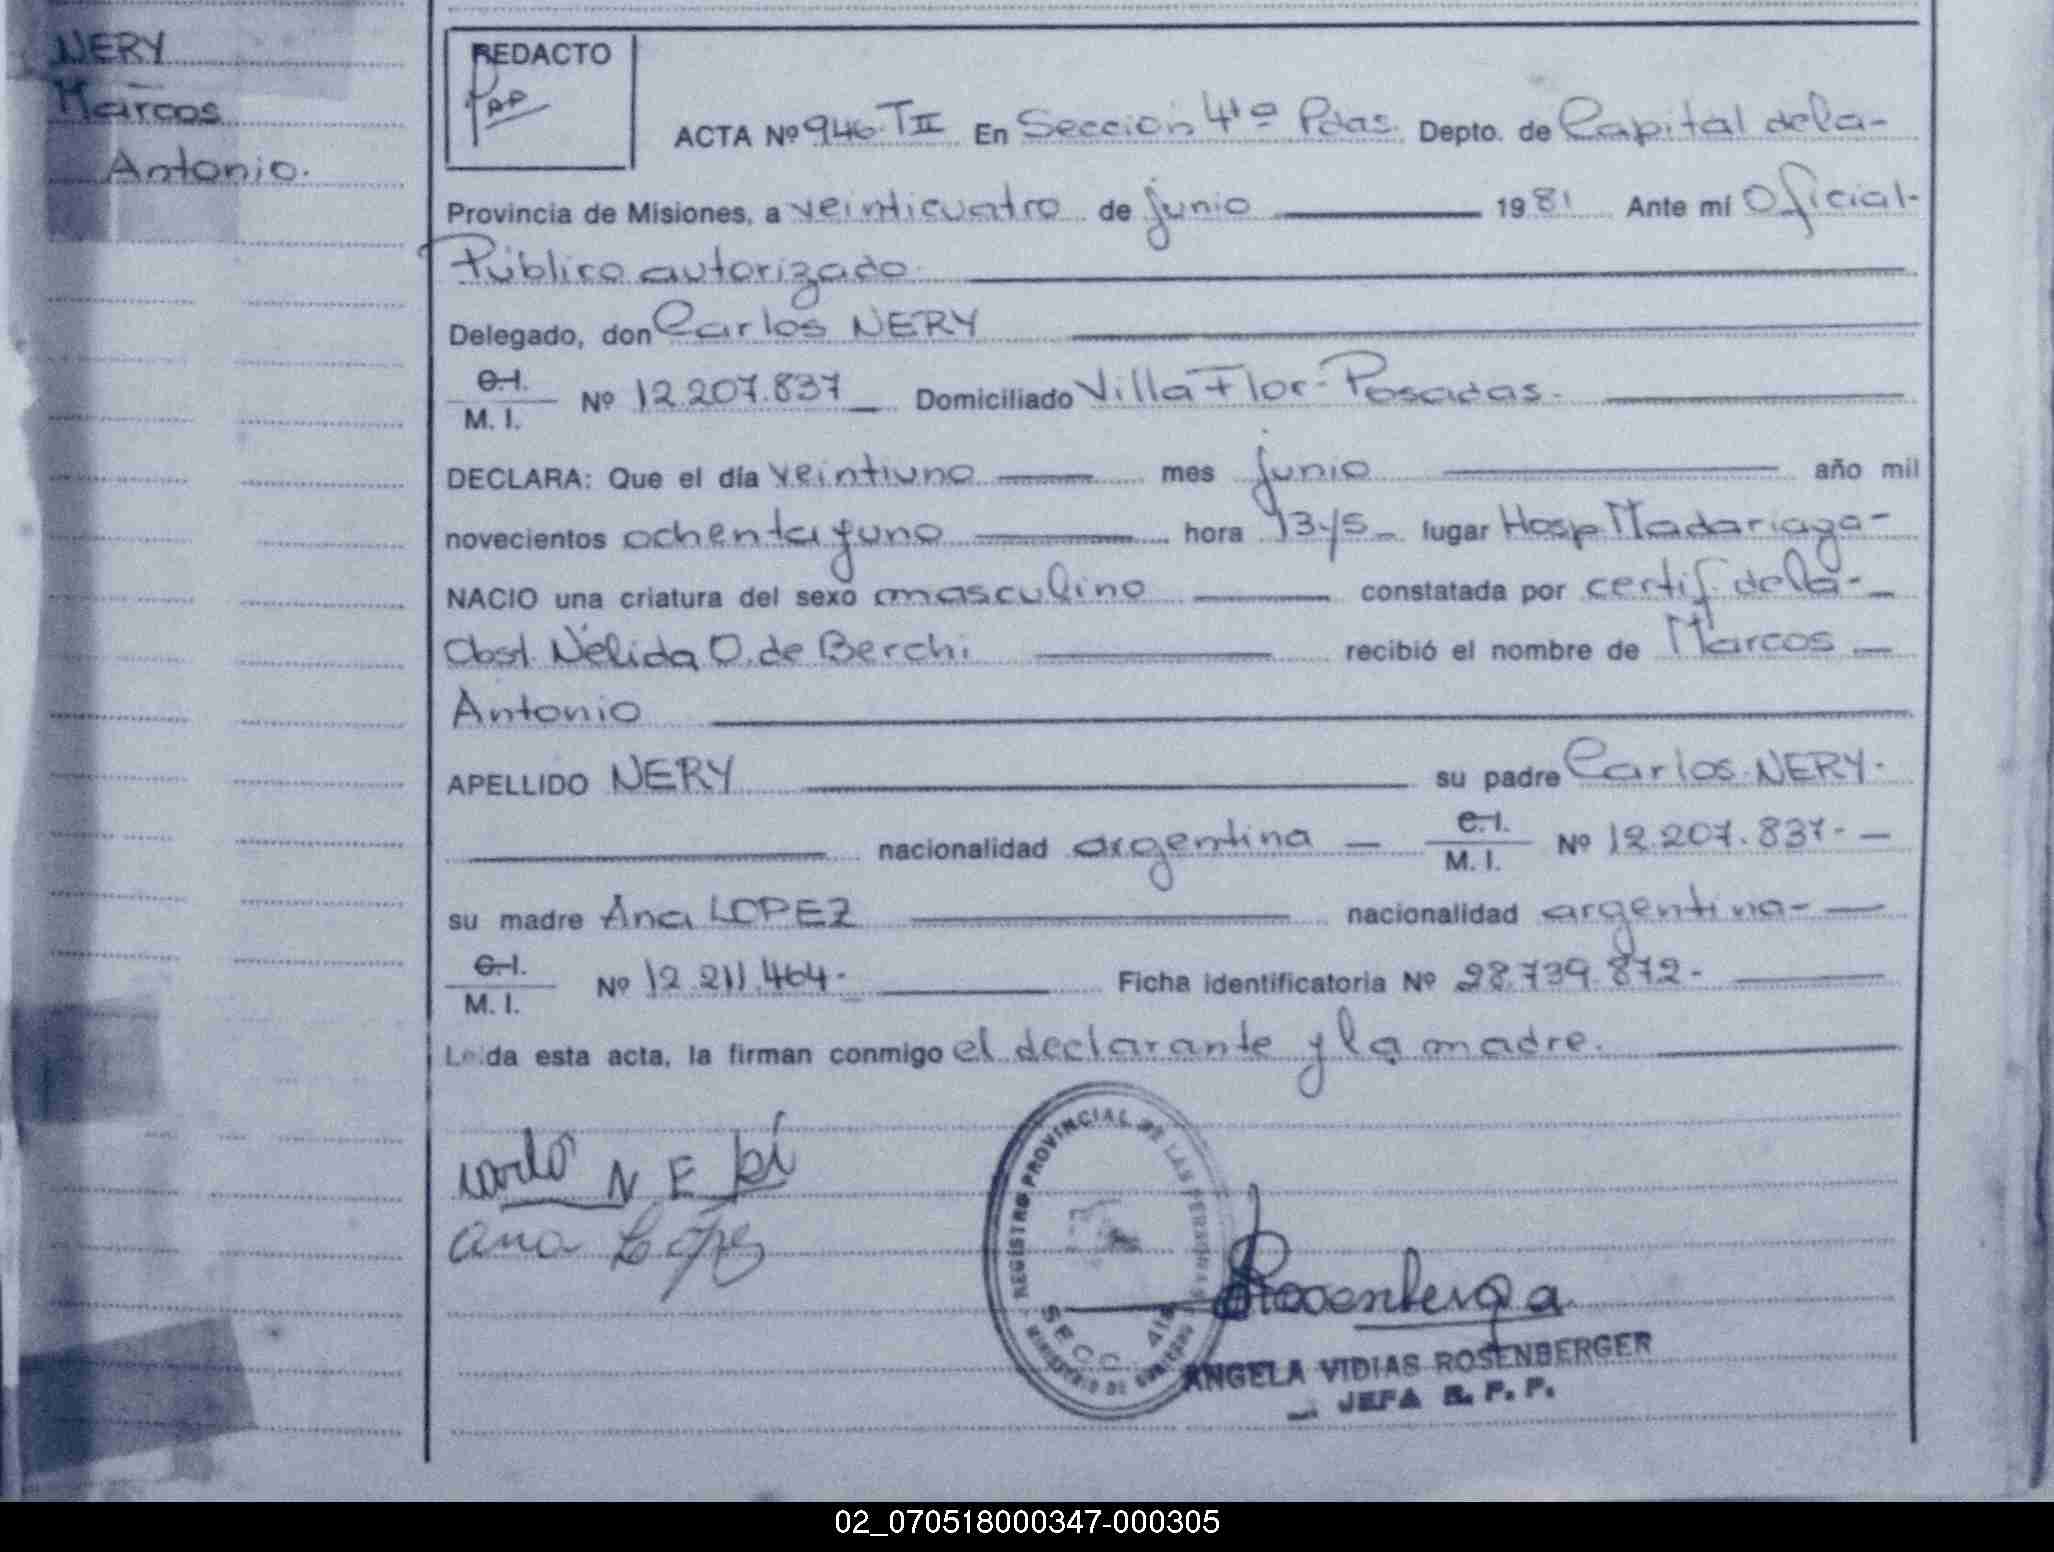 NERY
Marcos
Antonio.
REDACTO
ACTA Nº 946 TII En Sección 4ª Pdas. Depto. de Capital de la-
Provincia de Misiones, a veinticuatro de junio 1981 Ante mí Oficial-
Público autorizado.
Delegado, don Carlos NERY
C.I.
M. I. Nº 12.207.837 Domiciliado Villa Flor- Posadas.
DECLARA: Que el día veintiuno mes junio año mil
novecientos ochenta y uno hora lugar Hosp. Madariaga-
NACIO una criatura del sexo masculino constatada por certif. de la-
Obst. Nélida O. de Berchi recibió el nombre de Marcos
Antonio
APELLIDO NERY su padre Carlos NERY.
nacionalidad argentina C.I.
M. I. Nº 12.207.837.-
su madre Ana LOPEZ nacionalidad argentina-
C.I.
M. I. Nº 12.211.464- Ficha identificatoria Nº 28.739.872-
Leída esta acta, la firman conmigo el declarante y la madre.
Carlos NERI
Ana López
REGISTRO PROVINCIAL DE LAS PERSONAS
SECC. 4ta
MINISTERIO DE GOBIERNO
Rosenberger
ANGELA VIDIAS ROSENBERGER
JEFA R. P. P.
02_070518000347-000305